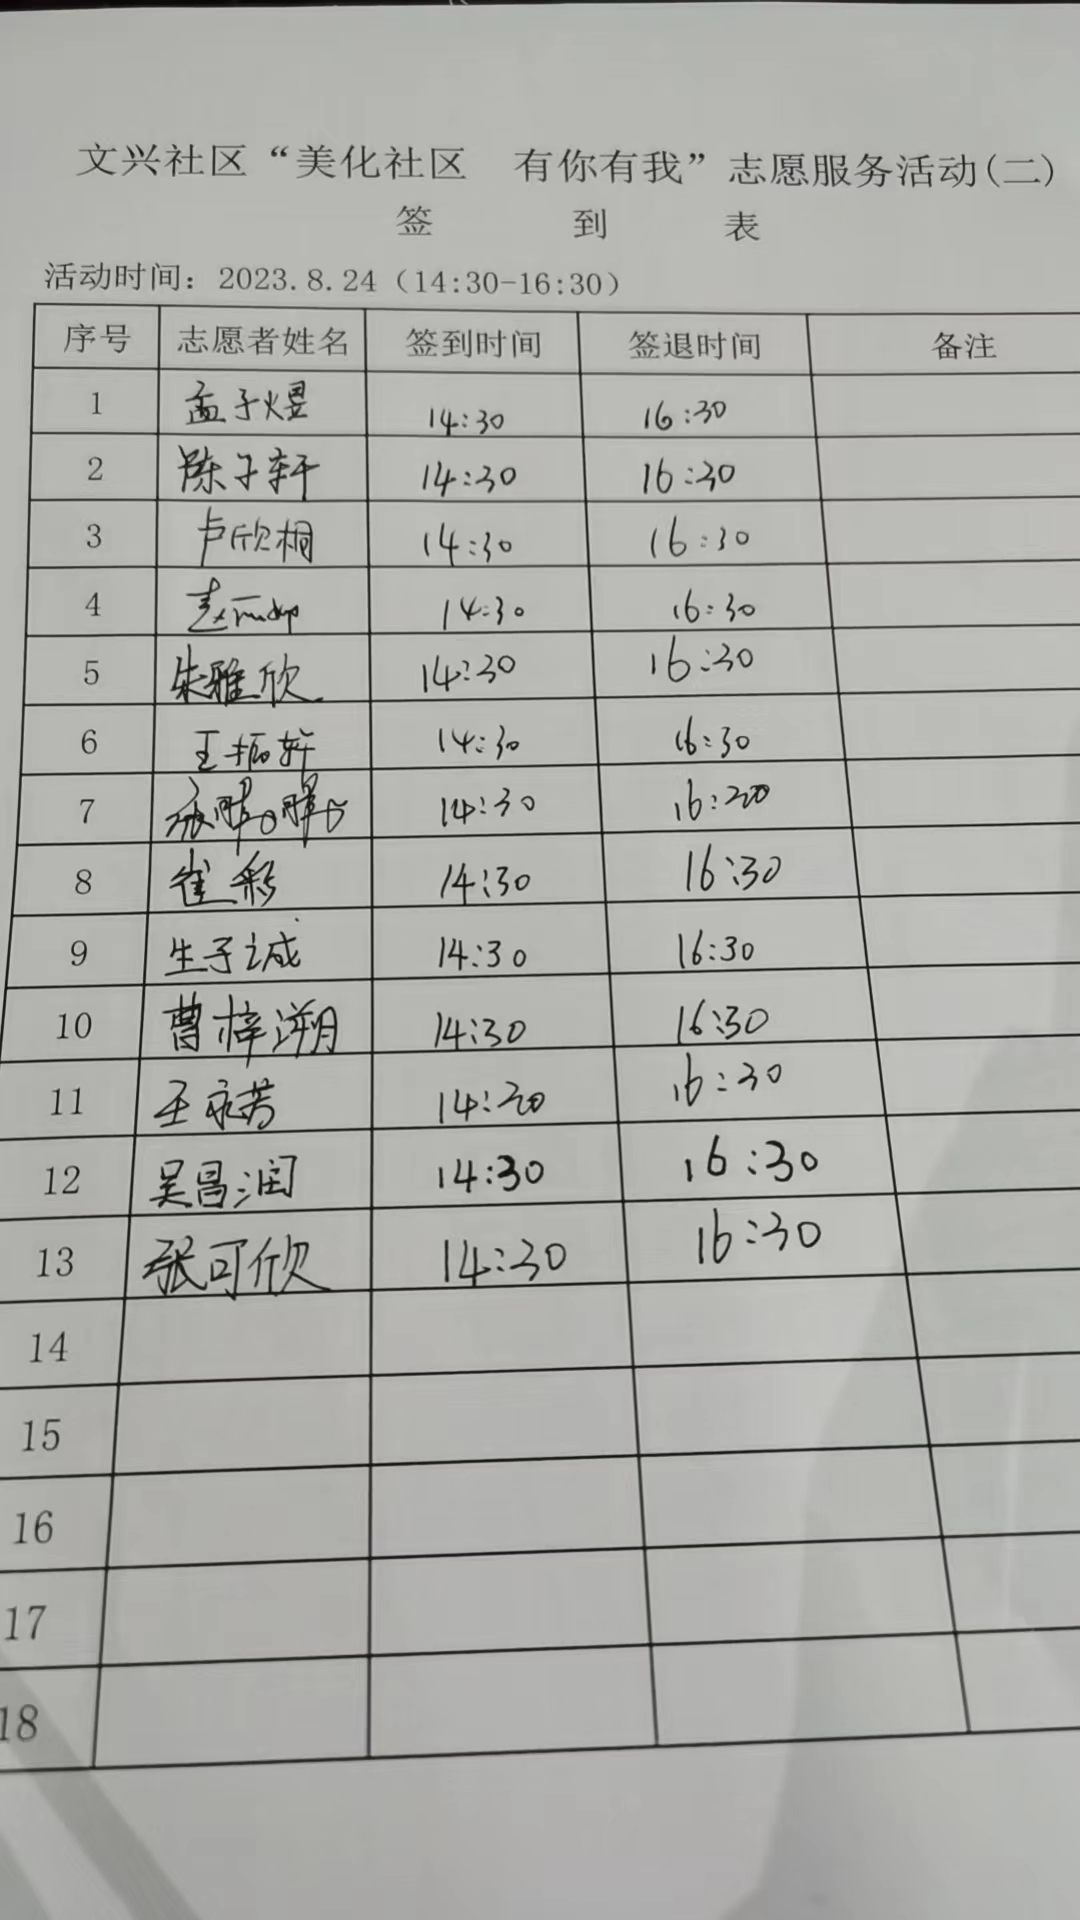 文兴社区“美化社区 有你有我”志愿服务活动(二)
签 到 表
活动时间：2023.8.24（14:30-16:30）
序号 志愿者姓名 签到时间 签退时间 备注
1 孟子煜 14:30 16:30
2 陈子轩 14:30 16:30
3 卢欣桐 14:30 16:30
4 赵 14:30 16:30
5 朱雅欣 14:30 16:30
6 王振轩 14:30 16:30
7 14:30 16:30
8 崔彩 14:30 16:30
9 生子诚 14:30 16:30
10 曹梓溯 14:30 16:30
11 王永芳 14:30 16:30
12 吴昌润 14:30 16:30
13 张可欣 14:30 16:30
14
15
16
17
18